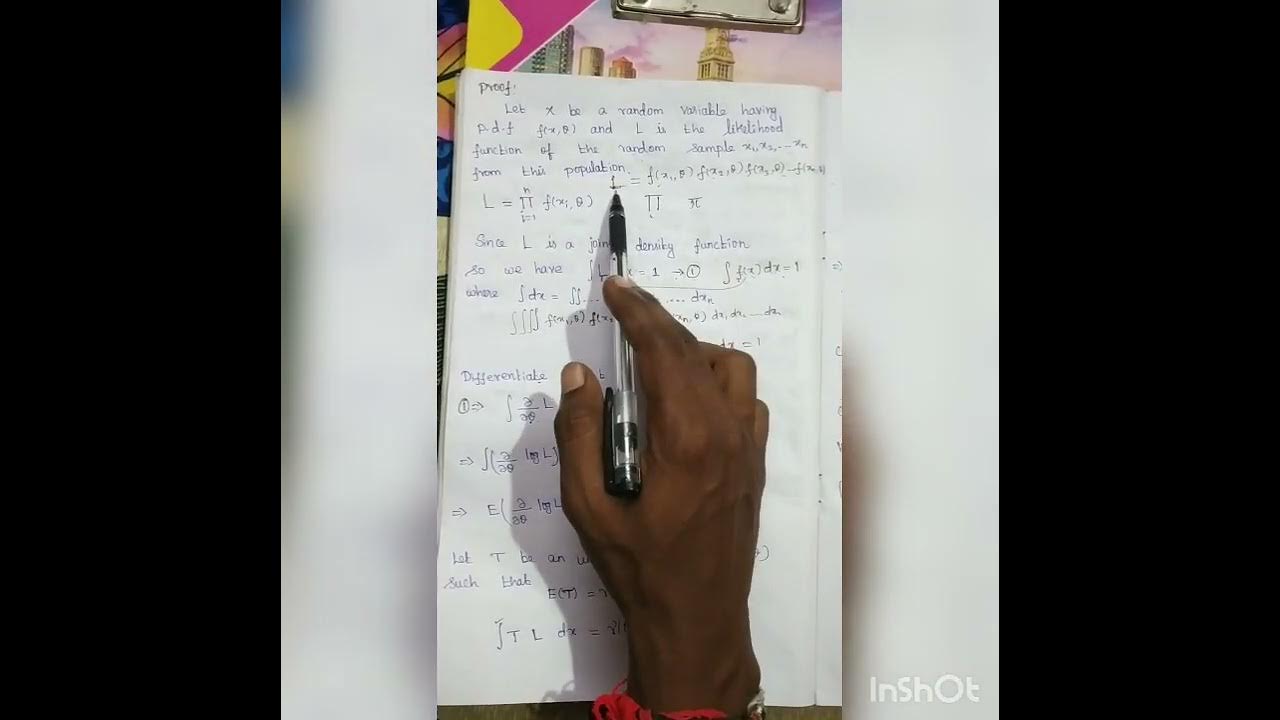 Proof:
Let x be a random variable having
p.d.f f(x,θ) and L is the likelihood
function of the random sample x₁,x₂,...xₙ
from this population.
L = f(x₁,θ) f(x₂,θ) f(x₃,θ)...f(xₙ,θ)
L = ∏ⁿᵢ₌₁ f(xᵢ,θ) ∏ π
Since L is a density function
so we have ∫ L = 1 → ① ∫ f(x) dx = 1
where ∫dx = ∫∫... ... dxₙ
∫∫∫∫ f(x₁,θ) f(x₂ xₙ,θ) dx₁ dx₂ ... dxₙ
dx = 1
Differentiate
① ⇒ ∫ ∂/∂θ L
⇒ ∫(∂/∂θ log L)
⇒ E(∂/∂θ log L
Let T be an
such that
E(T) =
∫ T L dx =
InShOt